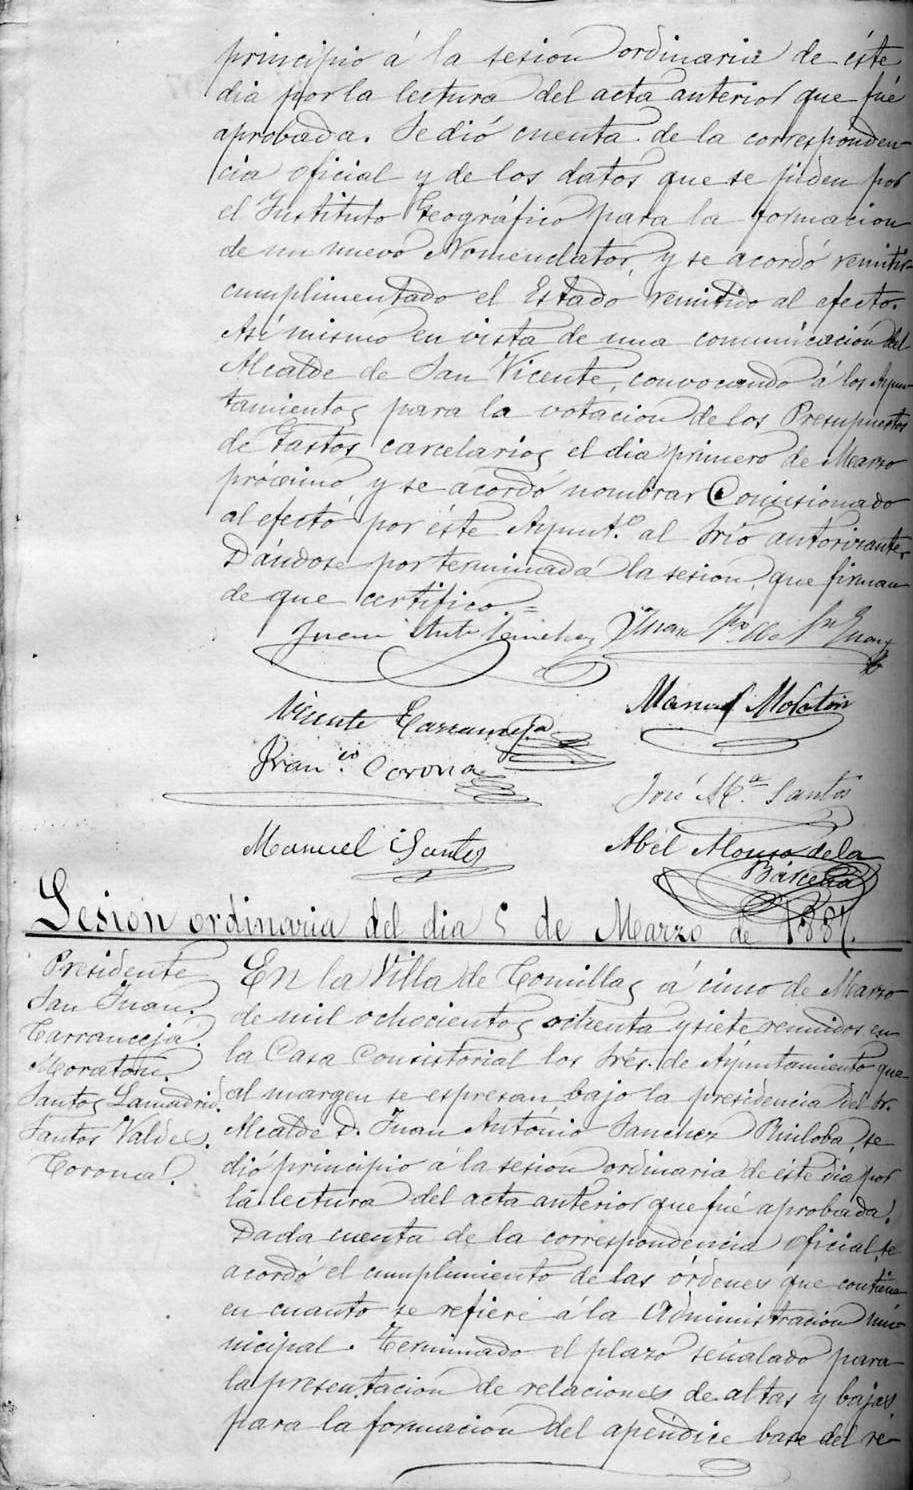 principio á la sesion ordinaria de éste
dia por la lectura del acta anterior que fué
aprobada. Se dió cuenta de la corresponden-
cia oficial y de los datos que se piden por
el Instituto Geográfico para la formacion
de un nuevo Nomenclator, y se acordó remitir
cumplimentado el Estado remitido al efecto.
Asi mismo en vista de una comunicacion del
Alcalde de San Vicente, convocando á los Ayun-
tamientos para la votacion de los Presupuestos
de Gastos carcelarios el dia primero de Marzo
próximo, y se acordó nombrar Comisionado
al efecto por éste Ayunt.o al Srio autorizante.
Dándose por terminada la sesion, que firman
de que certifico=
Juan Ant.o Sanchez Juan
Vicente Carranceja
Manuel Moraton
Fran.co Corona
José M.a Santos
Manuel Santos
Abel Alonso de la
Bárcena
Sesion ordinaria del dia 5 de Marzo de 1887.
Presidente
San Juan.
Carranceja.
Moraton.
Santos Lamadrid.
Santos Valdes.
Corona.
En la Villa de Comillas á cinco de Marzo
de mil ochocientos ochenta y siete reunidos en
la Casa Consistorial los Sres. de Ayuntamiento que
al margen se espresan bajo la presidencia del Sr.
Alcalde D. Juan António Sanchez Quiloba, se
dió principio á la sesion ordinaria de éste dia por
la lectura del acta anterior que fué aprobada.
Dada cuenta de la correspondencia oficial, se
acordó el cumplimiento de las órdenes que contiene
en cuanto se refiere á la Administracion mu-
nicipal. Terminado el plazo señalado para
la presentacion de relaciones de altas y bajas
para la formacion del apéndice base del re-